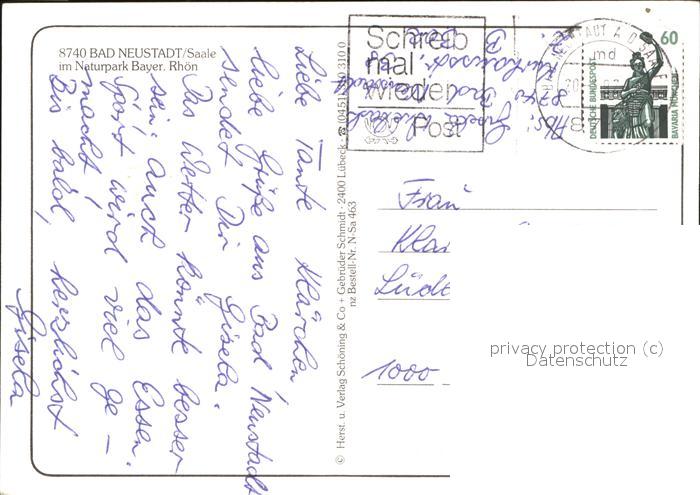 8740 BAD NEUSTADT/Saale
im Naturpark Bayer. Rhön
Liebe Tante Klärchen!
liebe Grüße aus Bad Neustadt
sendet Dir Gisela.
Das Wetter könnte besser
sein auch das Essen.
Sport wird viel ge-
macht!
Bis bald, herzlichst
Gisela
© Herst. u. Verlag Schöning & Co + Gebrüder Schmidt · 2400 Lübeck · ☎ (0451) 310
nz Bestell-Nr. N-Sa 463
Schreib
mal
wieder
Post
Abs: Gisela
8740 Bad
Kurhausstr.
60
DEUTSCHE BUNDESPOST
BAVARIA MÜNCHEN
md
Frau
Klä
Lüde
1000
privacy protection (c)
Datenschutz